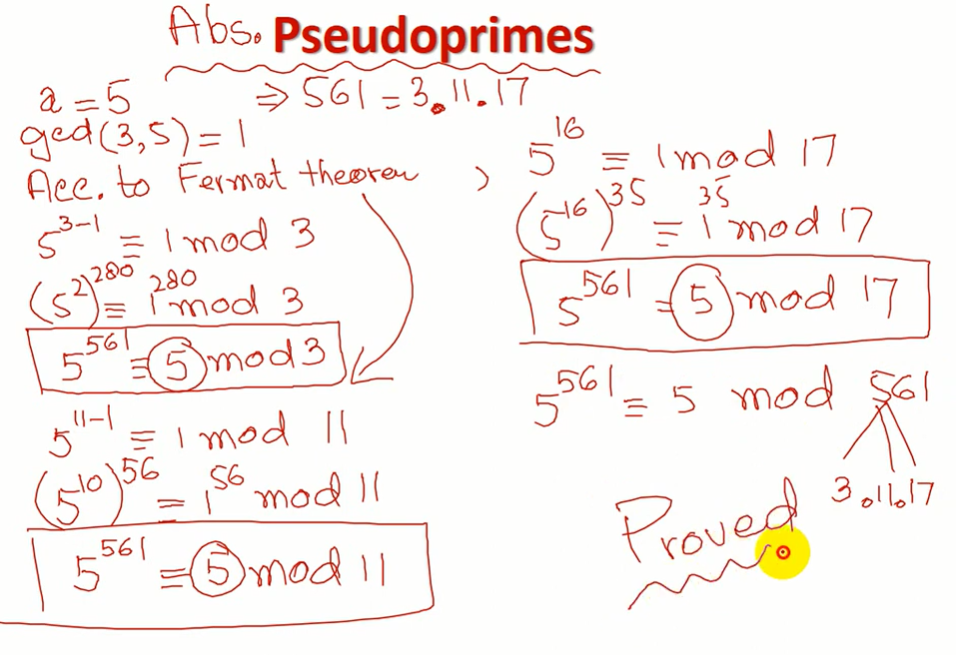 Abs. Pseudoprimes
a = 5 ⇒ 561 = 3.11.17
gcd(3,5) = 1
Acc. to Fermat theorem ,
5^{3-1} ≡ 1 mod 3
(5^2)^{280} ≡ 1^{280} mod 3
5^{561} ≡ 5 mod 3
5^{11-1} ≡ 1 mod 11
(5^{10})^{56} = 1^{56} mod 11
5^{561} ≡ 5 mod 11
5^{16} ≡ 1 mod 17
(5^{16})^{35} ≡ 1^{35} mod 17
5^{561} = 5 mod 17
5^{561} ≡ 5 mod 561
3.11.17
Proved